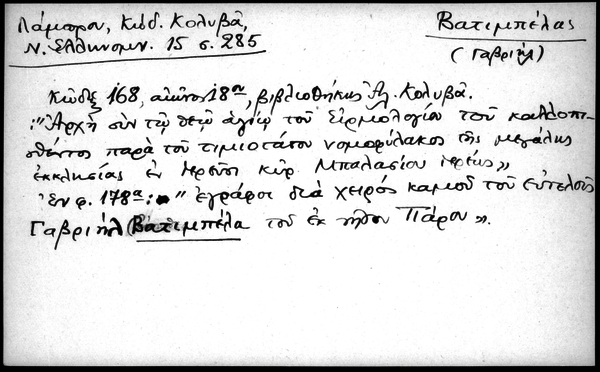 Λάμπρου, Κώδ. Κολυβᾶ,
Ν. Ἑλληνομν. 15 σ. 285
Βατιμπέλας
(Γαβριήλ)
Κῶδιξ 168, αἰῶνος 18ου, βιβλιοθήκης Ἀλ. Κολυβᾶ.
:"Ἀρχὴ σὺν τῷ θεῷ ἁγίῳ τοῦ Εἱρμολογίου τοῦ καλλοπι-
σθέντος παρὰ τοῦ τιμιοτάτου νομοφύλακος τῆς μεγάλης
ἐκκλησίας ἐν ἱερεῦσι κὺρ Μπαλασίου ἱερέως»
Ἐν φ. 178α:" ἐγράφη διὰ χειρὸς καμοῦ τοῦ εὐτελοῦς
Γαβριὴλ Βατιμπέλα τοῦ ἐκ νήσου Πάρου».